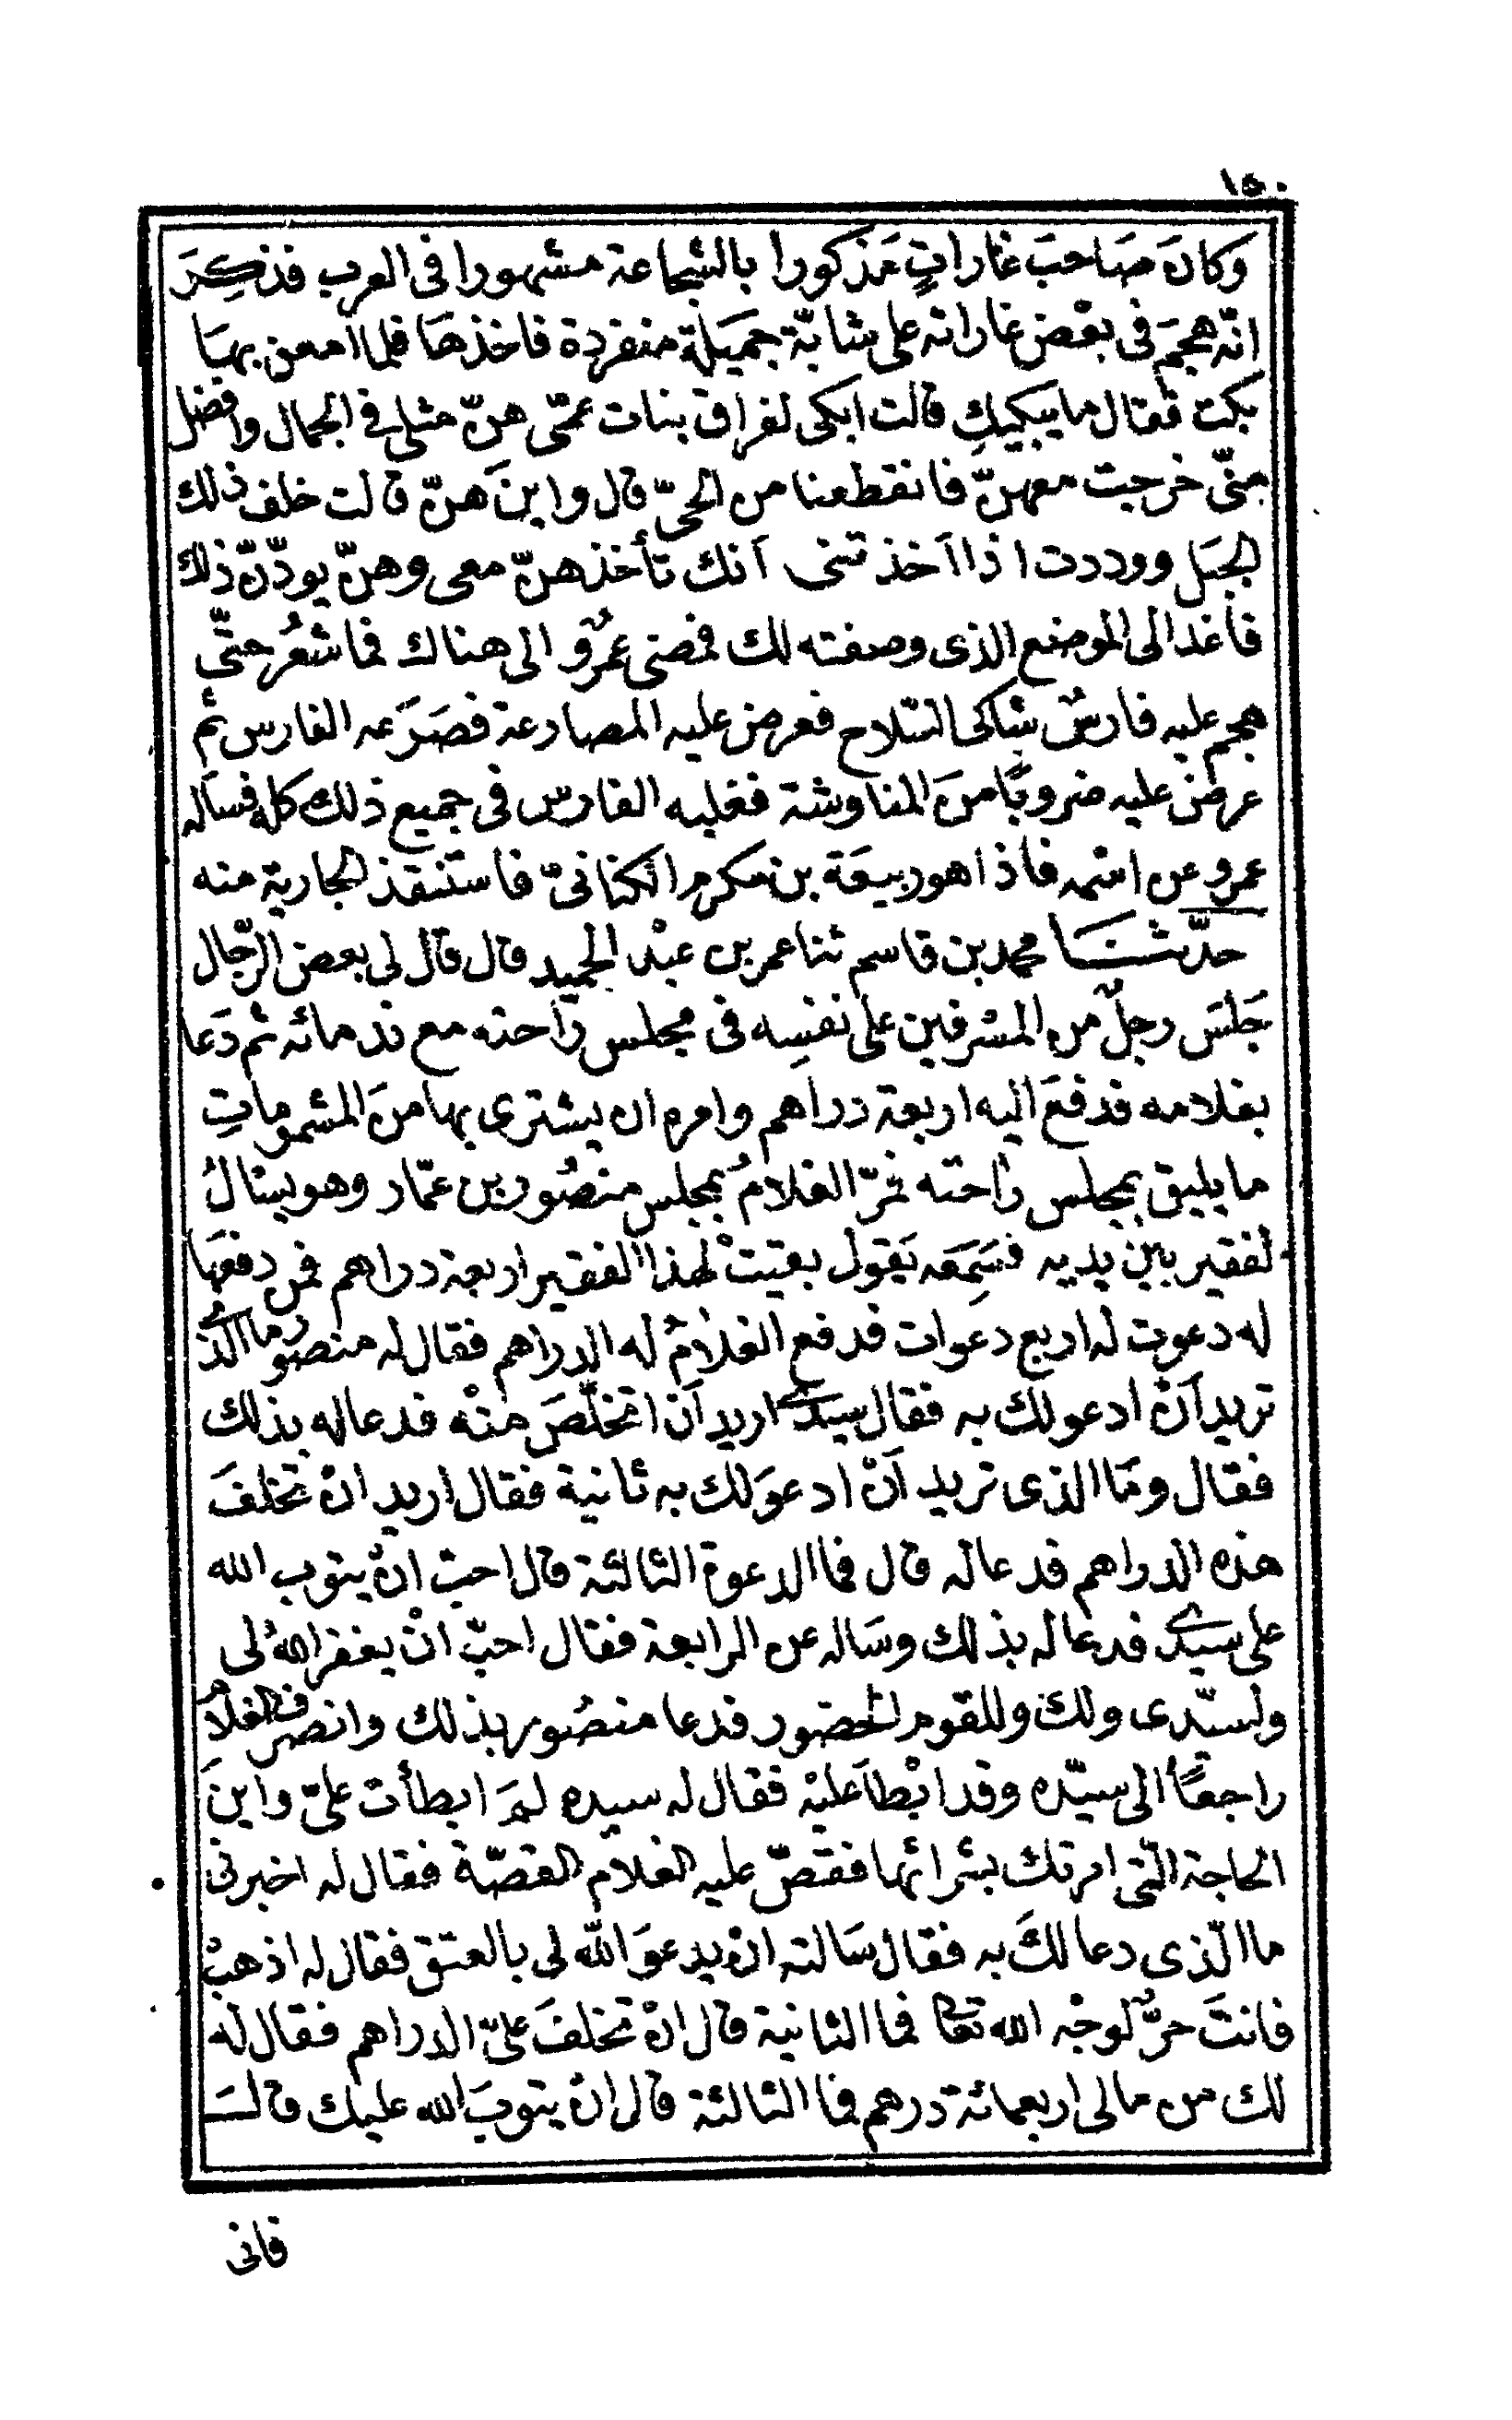 ١٥٠
وكان صَاحبَ غاراتٍ مَذكورا بالشجاعة مشهورا فى العرب فذكِرَ
انّه هجَمَ فى بعْض غاراته على شابّة جميَلة منفردة فاخذهَا فلما امعن بهَا
بكت فقال ما يبكيكِ قالت ابكى لفراق بنات عمّى هنّ مثلى فى الجمال وافضل
منّى خرجت معهنّ فانقطعنا من الحىّ قال واينَ هنّ قالت خلف ذلك
الجبَل ووددت اذا اخذتنى أنك تأخذهنّ معى وهنّ يودّن ذلك
فاغد الى الموضع الذى وصفته لك فمضى عمرٌو الى هناك فما شعُر حتّى
هجم عليه فارسٌ شاكى السّلاح فعرض عليه المصارعة فصَرَعه الفارس ثم
عرض عليه ضروبًا منَ المناوشة فغلبه الفارس فى جميع ذلك كله فسأله
عمرو عن اسْمه فاذا هو ربيعَة بن مكرم الكنانىّ فاستنقذ الجارية منه
حدّثنا محمد بن قاسم ثنا عمر بن عبْد الحميد قال قال لى بعض الرّجال
جَلسَ رجلٌ من المسْرفين على نفسِه فى مجلس راحته مع ندمائه ثم دَعا
بغلامه فدفعَ اليه اربعة دراهم وامره ان يشترى بها منَ المشموماتِ
ما يليق بمجلس راحته فمرّ الغلامُ بمجلس منصُور بن عمّار وهو يسْالُ
لفقير بين يديه فسَمِعَه يَقول بقيتْ لهذا الفقير اربعة دراهم فمن دفعهَا
له دعوت له اربع دعوات فدفع الغلامُ له الدراهم فقال له منصور ما الذى
تريد أنْ ادعو لك به فقال سيدى اريد أن اتخلّصَ منْه فدعا له بذلك
فقال ومَا الذى تريد أنْ ادعوَ لك به ثانية فقال اريد انْ تخلفَ
هذه الدراهم فدعا له قال فما الدعوة الثالثة قال احبّ انْ يتوب الله
على سيدى فدعا له بذلك وسَاله عن الرابعة فقال احبّ انْ يغفر اللهُ لى
ولسيّدى ولك وللقوم الحضور فدعا منصُور بذلك وانصرف الغلام
راجعًا الى سيّده وقد ابْطاَ عليْه فقال له سيده لمَ ابطأت علىّ واينَ
الحاجة الّتى امرتك بشرائها فقصّ عليه الغلام القصّة فقال له اخبرنى
ما الّذى دعا لكَ به فقال سَالته انْ يدعوَ اللّه لى بالعتق فقال له اذهبْ
فانتَ حرٌّ لوجْه الله تعا فما الثانية قال انْ تخلفَ علىّ الدراهم فقال له
لك من مالى اربعمائة درهم فما الثالثة قال انْ يتوبَ الله عليك قالَ
فانى